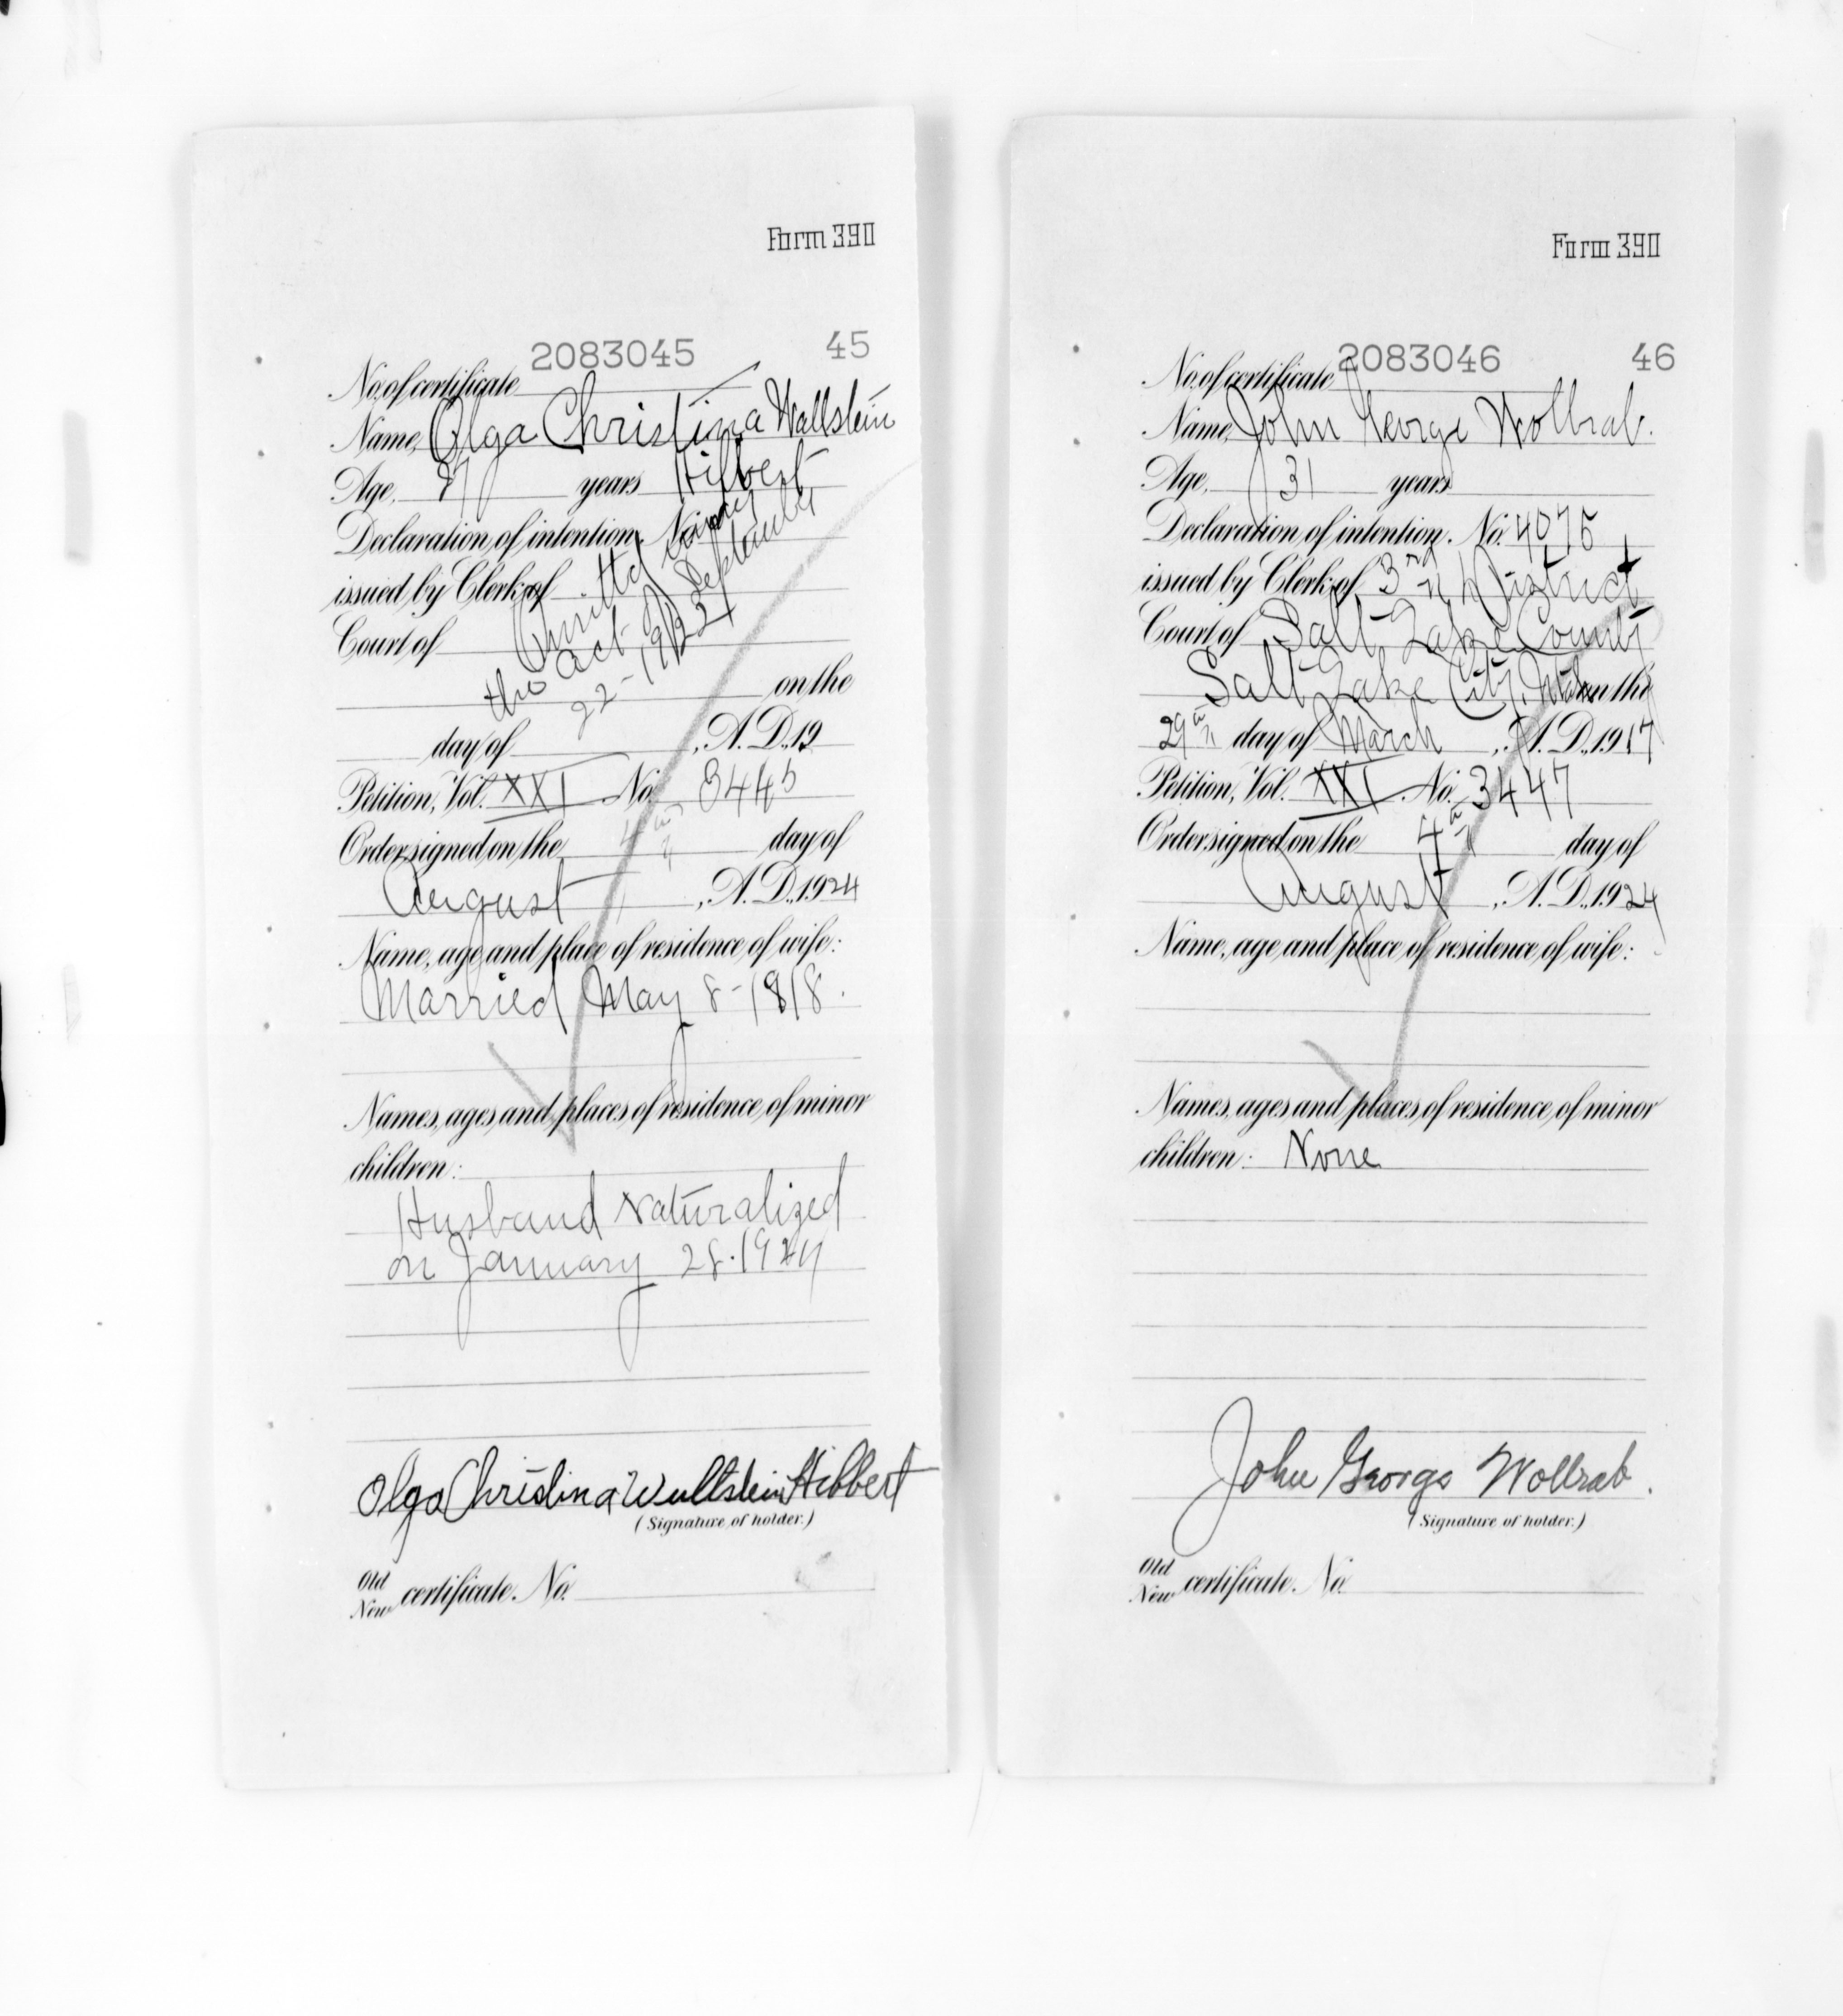 Form 390
2083045 45
No. of certificate
Name, Olga Christina Wallstein
Age, years Hilbert
Declaration of intention, No.
issued by Clerk of Omitted
Court of the act of September
22-1922
on the
day of , A.D. 19
Petition, Vol. XXI No. 3445
Order signed on the 4 day of
August , A.D. 1924
Name, age and place of residence of wife:
Married May 8-1918.
Names, ages and places of residence of minor
children:
Husband Naturalized
on January 28.1924
Olga Christina Wullstein Hibbert
(Signature of holder.)
Old
New certificate. No.
Form 390
2083046 46
No. of certificate
Name, John George Wolbrab.
Age, 31 years
Declaration of intention. No. 4075
issued by Clerk of 3rd District
Court of Salt Lake County
Salt Lake City, Utah on the
29 day of March , A.D. 1917
Petition, Vol. XXI No. 3447
Order signed on the 4 day of
August , A.D. 1924
Name, age and place of residence of wife:
Names, ages and places of residence of minor
children: None
John George Wollrab.
(Signature of holder.)
Old
New certificate. No.